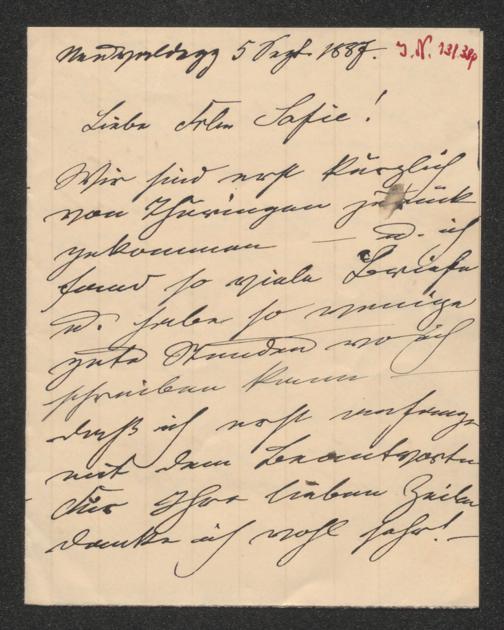 Neuwaldegg 5 Sept. 1887.
J.N. 131.389
Liebe Frln Sofie!
Wir sind erst kürzlich
von Thüringen zurück
gekommen — u. ich
fand so viele Briefe
u. habe so wenige
gute Stunden wo ich
schreiben kann —
daß ich erst anfange
mit dem Beantworten
Für Ihre lieben Zeilen
danke ich wohl sehr! —